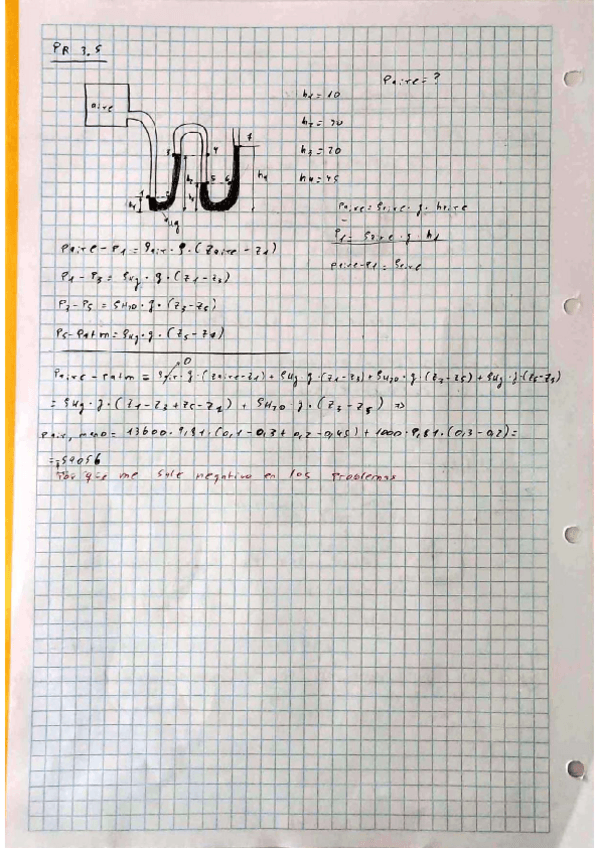 PR 3.5
Paire = ?
aire
h1 = 10
h2 = 30
h3 = 20
h4 = 45
3
4
7
1
5
6
h1
h2
h4
Hg
Paire = ρaire · g · haire
P1 = ρaire · g · h1
Paire-P1 = ρaire
Paire - P1 = ρair · g · (Zaire - Z1)
P1 - P3 = ρHg · g · (Z1 - Z3)
P3 - P5 = ρH2O · g · (Z3 - Z5)
P5 - Patm = ρHg · g · (Z5 - Z7)
0
Paire - Patm = ρair · g · (Zaire - Z1) + ρHg · g · (Z1 - Z3) + ρH2O · g · (Z3 - Z5) + ρHg · g · (Z5 - Z7)
= ρHg · g · (Z1 - Z3 + Z5 - Z7) + ρH2O · g · (Z3 - Z5) =>
Pair, mano = 13600 · 9,81 · (0,1 - 0,3 + 0,2 - 0,45) + 1000 · 9,81 · (0,3 - 0,2) =
= -59056
Por que me sale negativo en los problemas